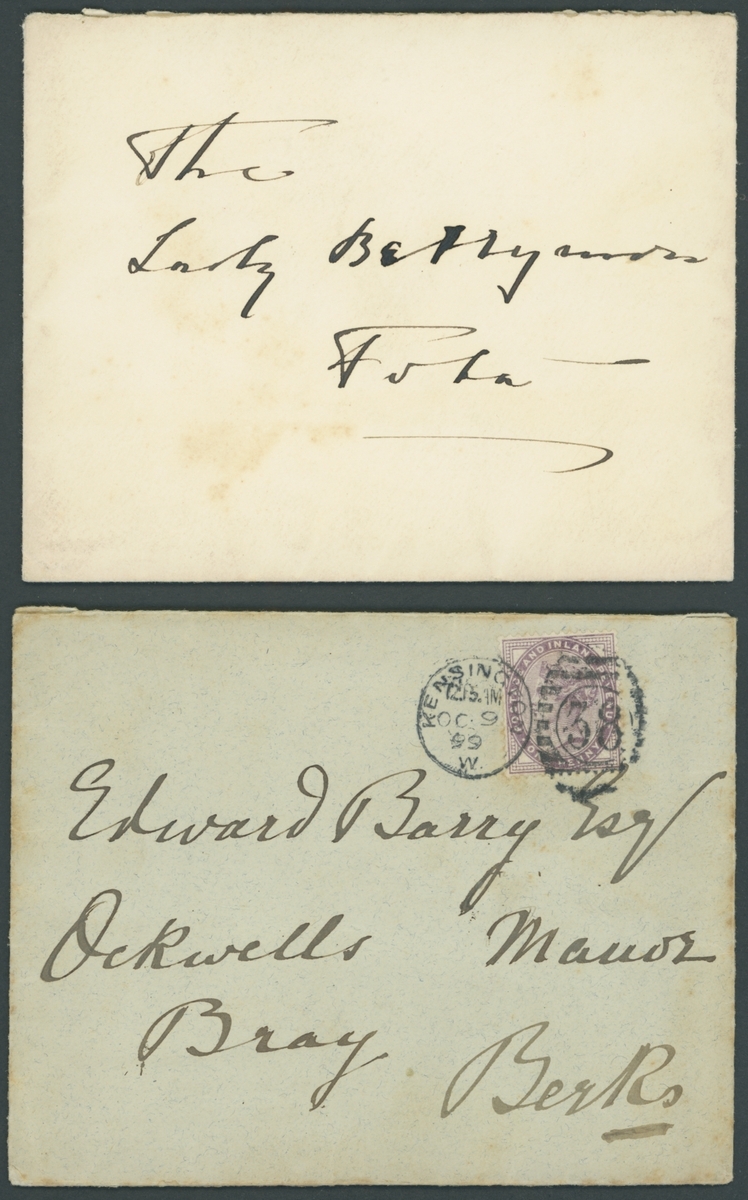 The
Lady Barrymore
Fota
KENSINGTON
12.15.AM
OC 9
99
W.
POSTAGE AND INLAND REVENUE
ONE PENNY
38
Edward Barry Esq
Ockwells Manor
Bray
Berks